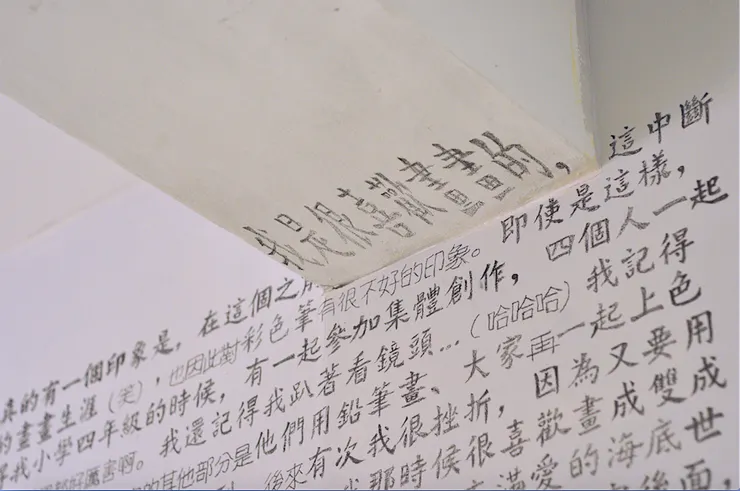 真的有一個印象是，在這個之前我是很喜歡畫畫的，這中斷
的畫畫生涯（笑），也因此對彩色筆有很不好的印象。即使是這樣，
得我小學四年級的時候，有一起參加集體創作，四個人一起
都好厲害啊。我還記得我趴著看鏡頭...（哈哈哈）我記得
的其他部分是他們用鉛筆畫、大家再一起上色
後來有次我很挫折，因為又要用
我那時候很喜歡畫成雙成
滿愛的海底世
後面，